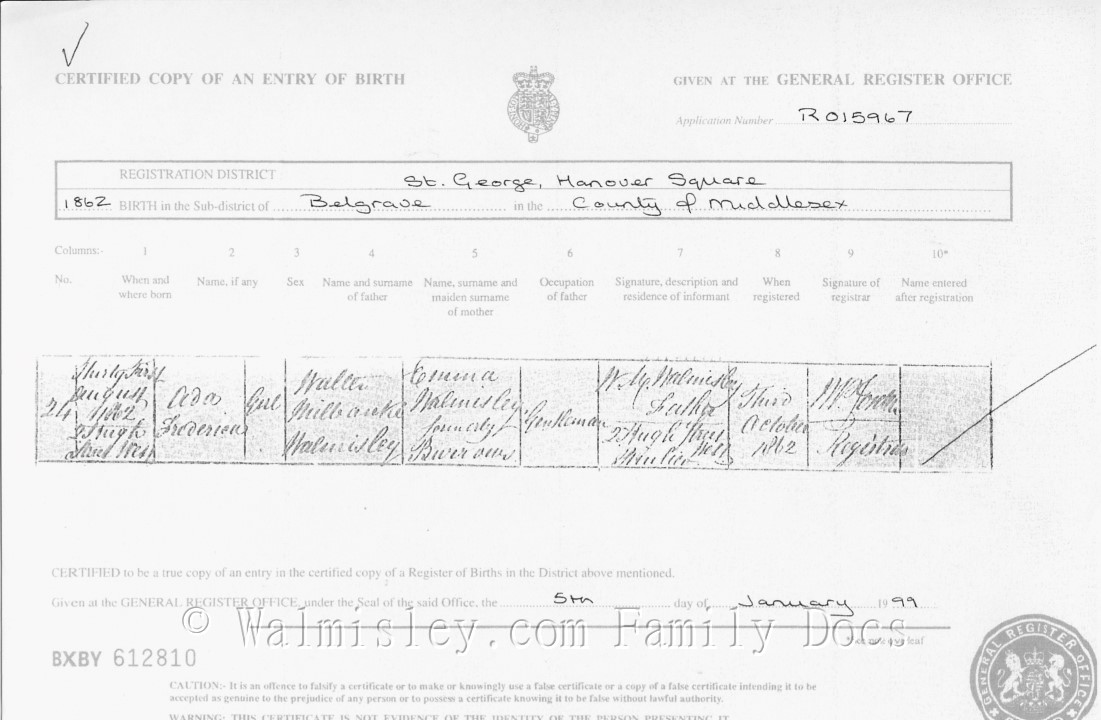 CERTIFIED COPY OF AN ENTRY OF BIRTH
GIVEN AT THE GENERAL REGISTER OFFICE
Application Number R015967
REGISTRATION DISTRICT St. George, Hanover Square
1862 BIRTH in the Sub-district of Belgrave in the County of Middlesex
Columns:- 1 2 3 4 5 6 7 8 9 10*
No. When and where born Name, if any Sex Name and surname of father Name, surname and maiden surname of mother Occupation of father Signature, description and residence of informant When registered Signature of registrar Name entered after registration
24
Thirty First
August
1862
2 Hugh
Street West
Ada
Frederica
Girl
Walter
Milbanke
Walmisley
Emma
Walmisley
formerly
Burrows
Gentleman
W. M. Walmisley
Father
2 Hugh Street
West
Pimlico
Third
October
1862
Registrar
CERTIFIED to be a true copy of an entry in the certified copy of a Register of Births in the District above mentioned.
Given at the GENERAL REGISTER OFFICE, under the Seal of the said Office, the 5th day of January 1999
© Walmisley.com Family Docs
*See note overleaf
BXBY 612810
CAUTION:- It is an offence to falsify a certificate or to make or knowingly use a false certificate or a copy of a false certificate intending it to be
accepted as genuine to the prejudice of any person or to possess a certificate knowing it to be false without lawful authority.
WARNING: THIS CERTIFICATE IS NOT EVIDENCE OF THE IDENTITY OF THE PERSON PRESENTING IT.
GENERAL REGISTER OFFICE